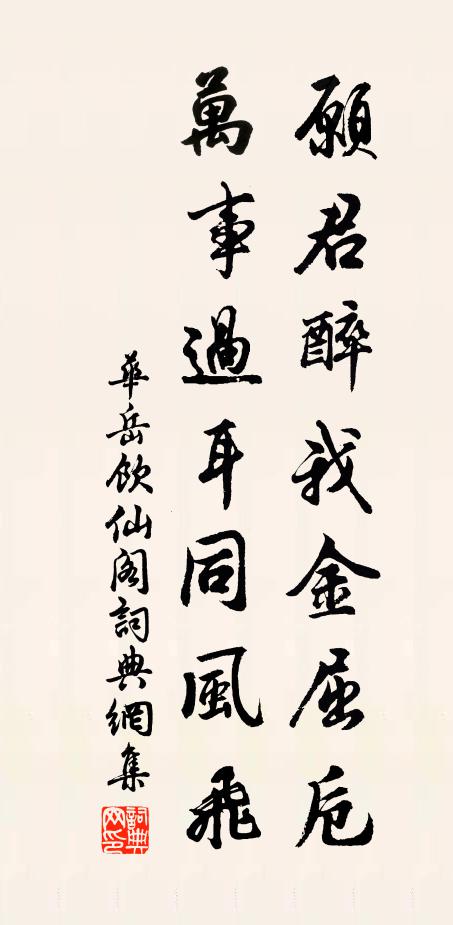 願君醉我金屈卮
萬事過耳同風飛
華岳飲仙閣詞典網集
詞典網印